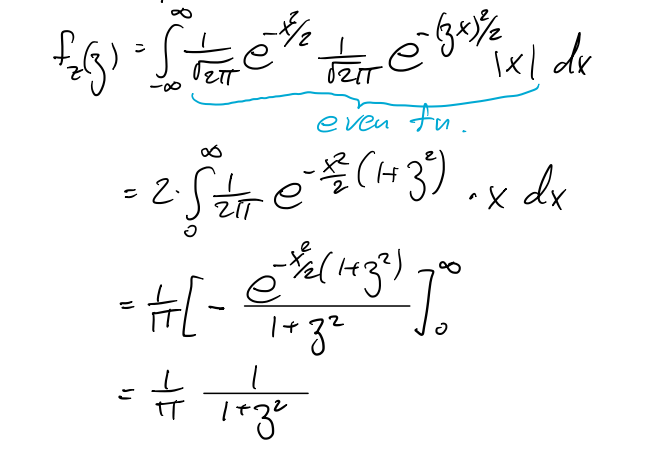 f_z(z) = ∫_{-∞}^{∞} 1/√(2π) e^{-x²/2} 1/√(2π) e^{-(zx)²/2} |x| dx
even fn.
= 2· ∫_0^∞ 1/(2π) e^{-x²/2 (1+z²)} · x dx
= 1/π [ - e^{-x²/2 (1+z²)} / (1+z²) ]_0^∞
= 1/π 1/(1+z²)